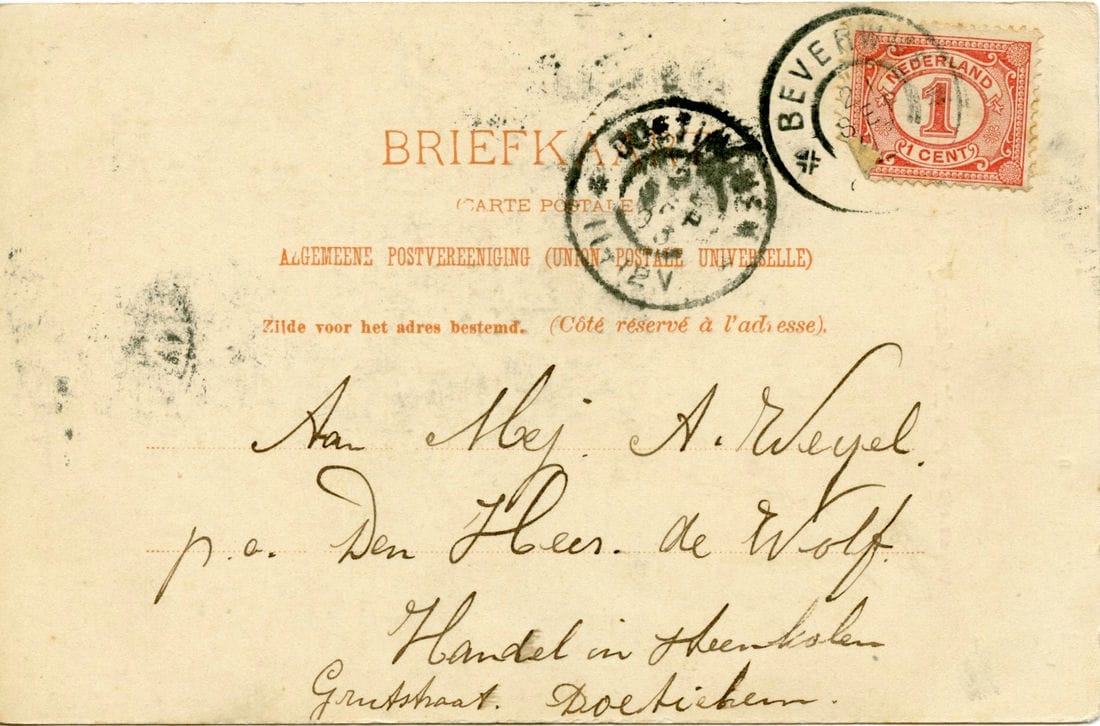 BEVERW
NEDERLAND
1
1 CENT
BRIEFKAA
(CARTE POSTALE
11-12V
ALGEMEENE POSTVEREENIGING (UNION POSTALE UNIVERSELLE)
Zijde voor het adres bestemd. (Côté réservé à l'adresse).
Aan Mej. A. Weyel.
p.a. Den Heer. de Wolf.
Handel in Steenkolen
Grutstraat. Doetichem.